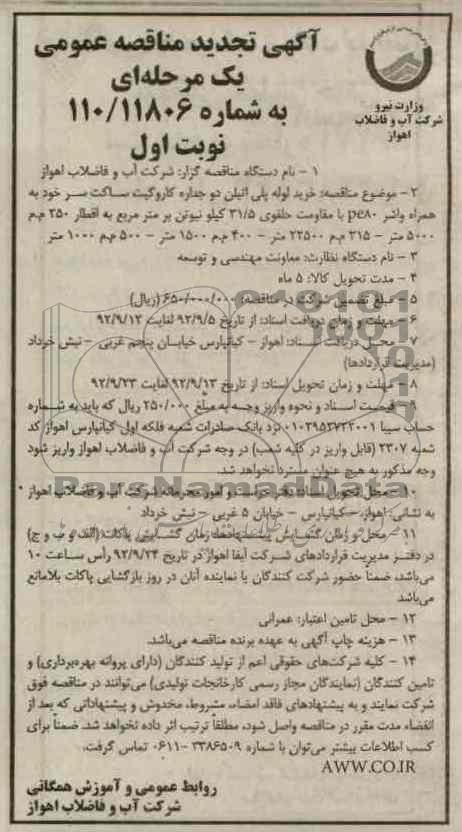 آگهی تجدید مناقصه عمومی
یک مرحله‌ای
به شماره ۱۱۰/۱۱۸۰۶
نوبت اول
وزارت نیرو
شرکت آب و فاضلاب
اهواز
۱ – نام دستگاه مناقصه گزار: شرکت آب و فاضلاب اهواز
۲ – موضوع مناقصه: خرید لوله پلی اتیلن دو جداره کاروگیت ساکت سر خود به
همراه واشر pe۸۰ با مقاومت حلقوی ۳۱/۵ کیلو نیوتن بر متر مربع به اقطار ۲۵۰ م.م
۵۰۰۰ متر – ۳۱۵ م.م ۲۲۵۰۰ متر – ۴۰۰ م.م ۱۵۰۰ متر – ۵۰۰ م.م ۱۰۰۰ متر
۳ – نام دستگاه نظارت: معاونت مهندسی و توسعه
۴ – مدت تحویل کالا: ۵ ماه
۵ – مبلغ تضمین شرکت در مناقصه: ۶۵۰/۰۰۰/۰۰۰ (ریال)
۶ – مهلت و زمان دریافت اسناد: از تاریخ ۹۲/۹/۵ لغایت ۹۲/۹/۱۲
۷ – محل دریافت اسناد: اهواز – کیانپارس خیابان پنجم غربی – نبش خرداد
(مدیریت قراردادها)
۸ – مهلت و زمان تحویل اسناد: از تاریخ ۹۲/۹/۱۳ لغایت ۹۲/۹/۲۳
۹ – قیمت اسناد و نحوه واریز وجه به مبلغ ۲۵۰/۰۰۰ ریال که باید به شماره
حساب سیبا نزد بانک صادرات شعبه فلکه اول کیانپارس اهواز کد
شعبه ۲۳۰۷ (قابل واریز در کلیه شعب) در وجه شرکت آب و فاضلاب اهواز واریز شود
وجه مذکور به هیچ عنوان مسترد نخواهد شد.
۱۰ – محل تحویل اسناد: دفتر حراست و امور محرمانه شرکت آب و فاضلاب اهواز
به نشانی: اهواز – کیانپارس – خیابان ۵ غربی – نبش خرداد
۱۱ – محل و زمان گشایش پیشنهادها: زمان گشایش پاکات (الف و ب و ج)
در دفتر مدیریت قراردادهای شرکت آبفا اهواز در تاریخ ۹۲/۹/۲۴ رأس ساعت ۱۰
می‌باشد، ضمناً حضور شرکت کنندگان یا نماینده آنان در روز بازگشایی پاکات بلامانع
می‌باشد
۱۲ – محل تامین اعتبار: عمرانی
۱۳ – هزینه چاپ آگهی به عهده برنده مناقصه می‌باشد.
۱۴ – کلیه شرکت‌های حقوقی اعم از تولید کنندگان (دارای پروانه بهره‌برداری) و
تامین کنندگان (نمایندگان مجاز رسمی کارخانجات تولیدی) می‌توانند در مناقصه فوق
شرکت نمایند و به پیشنهادهای فاقد امضاء، مشروط، مخدوش و پیشنهاداتی که بعد از
انقضاء مدت مقرر در مناقصه واصل شود، مطلقاً ترتیب اثر داده نخواهد شد. ضمناً برای
کسب اطلاعات بیشتر می‌توان با شماره ۳۳۸۶۵۰۹ -۰۶۱۱ تماس گرفت.
AWW.CO.IR
روابط عمومی و آموزش همگانی
شرکت آب و فاضلاب اهواز
ParsNamadData